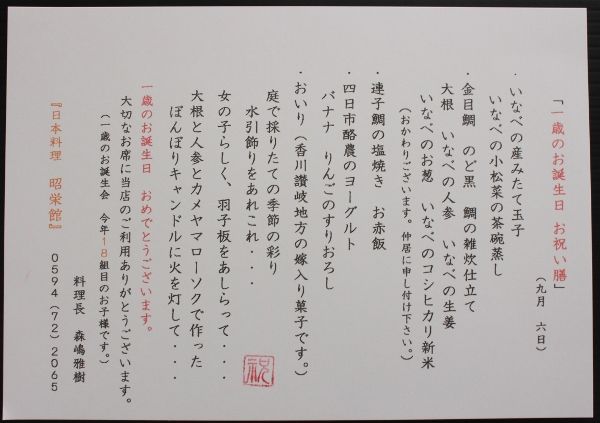 「一歳のお誕生日 お祝い膳」
（九月 六日）
・いなべの産みたて玉子
いなべの小松菜の茶碗蒸し
・金目鯛 のど黒 鯛の雑炊仕立て
大根 いなべの人参 いなべの生姜
いなべのお葱 いなべのコシヒカリ新米
（おかわりございます。仲居に申し付け下さい。）
・連子鯛の塩焼き お赤飯
・四日市酪農のヨーグルト
バナナ りんごのすりおろし
・おいり（香川讃岐地方の嫁入り菓子です。）
庭で採りたての季節の彩り
水引飾りをあれこれ・・・
女の子らしく、羽子板をあしらって・・・・
大根と人参とカメヤマローソクで作った
ぼんぼりキャンドルに火を灯して・・・・
祝
一歳のお誕生日 おめでとうございます。
大切なお席に当店のご利用ありがとうございます。
（一歳のお誕生会 今年１８組目のお子様です。）
料理長 森嶋雅樹
『日本料理 昭栄館』 ０５９４（７２）２０６５